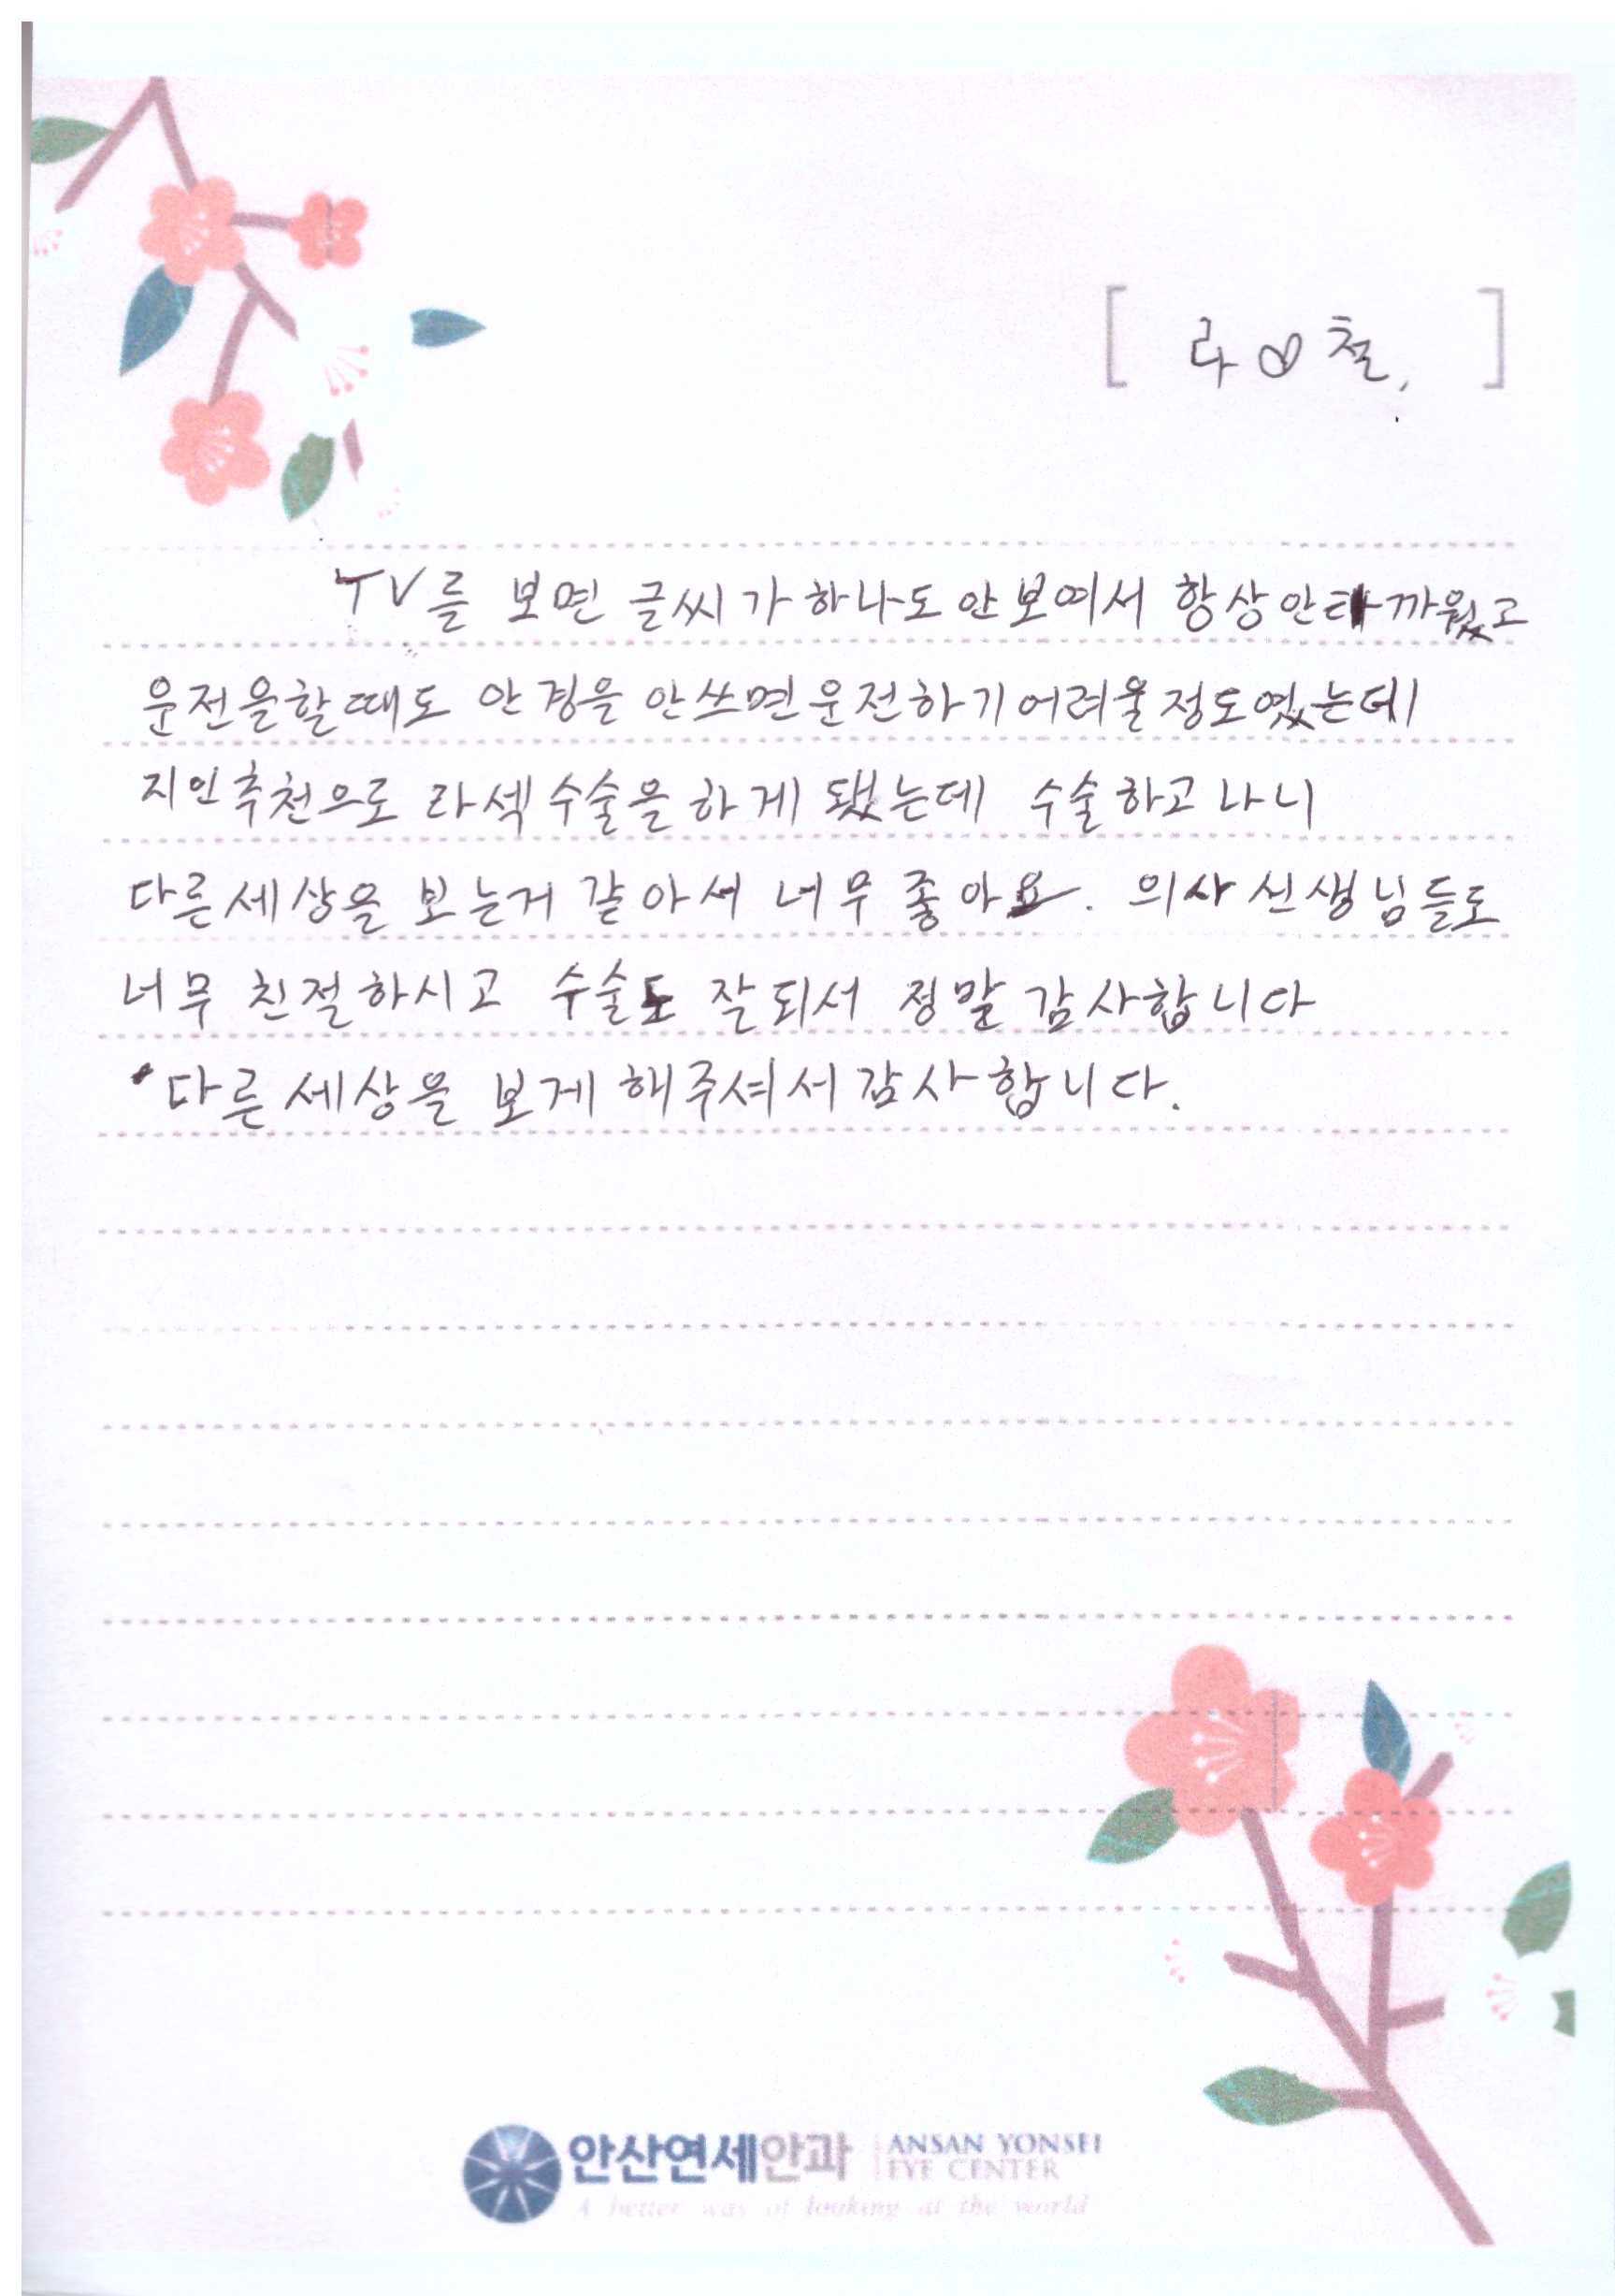 [ 라 ㅇ 철. ]
TV를 보면 글씨가 하나도 안보여서 항상안타까웠고
운전을할때도 안경을 안쓰면운전하기어려울정도였는데
지인추천으로 라섹수술을하게 됐는데 수술하고나니
다른세상을 보는거 같아서 너무 좋아요. 의사선생님들도
너무 친절하시고 수술도 잘되서 정말감사합니다
다른세상을 보게해주셔서감사합니다.
안산연세안과 ANSAN YONSEI
EYE CENTER
A better way of looking at the world